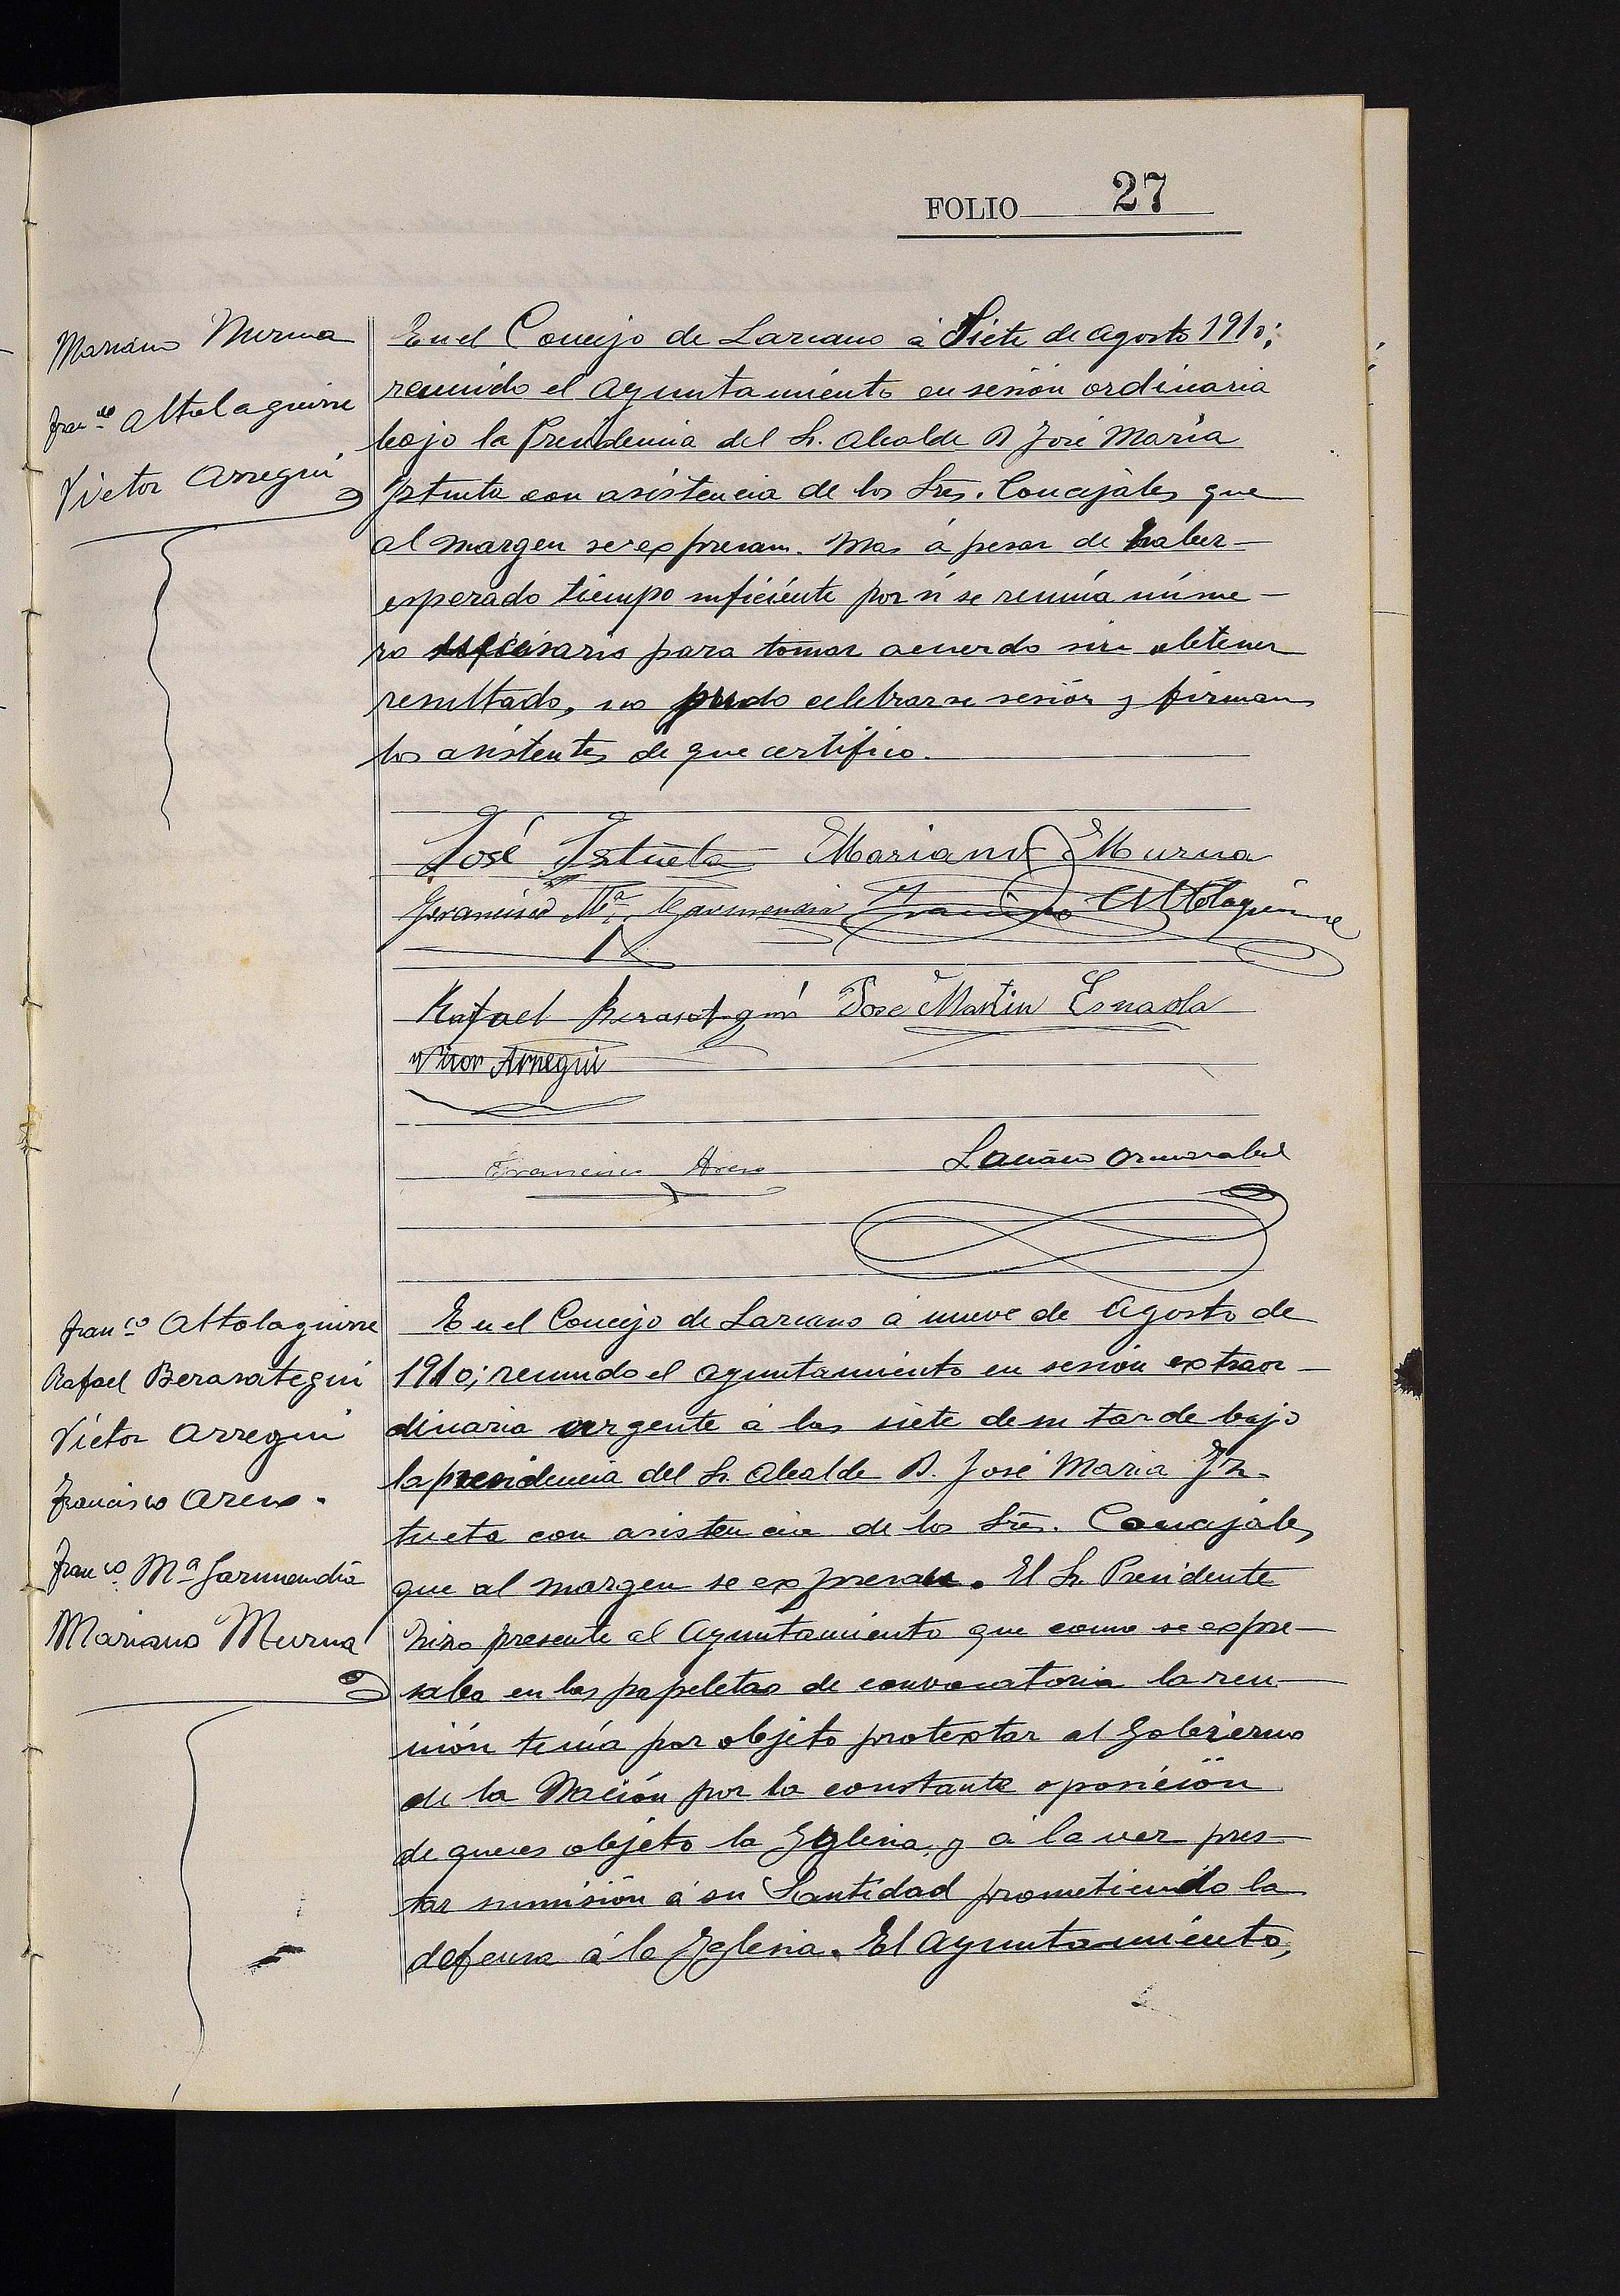 FOLIO 27
Mariano Murua
Fran.co Altolaguirre
Victor Arregui
En el Concejo de Lazcano á Siete de Agosto 1910;
reunido el Ayuntamiento en sesión ordinaria
bajo la Presidencia del Sr. Alcalde D José Maria
Iztueta con asistencia de los Sres. Concejales que
al margen se expresan. Mas á pesar de haber
esperado tiempo suficiente por si se reunía núme-
ro necesario para tomar acuerdo sin obtener
resultado, no pudo celebrarse sesión y firman
los asistentes de que certifico.
José Iztueta Mariano Murua
Francisco Mª. Garmendia Francisco Altolaguirre
Rafael Berasategui Jose Martin Esnaola
Victor Arregui
Francisco Areno
Fran.co Altolaguirre
Rafael Berasategui
Victor Arregui
Francisco Areno.
Fran.co Mª Garmendia
Mariano Murua
En el Concejo de Lazcano á nueve de Agosto de
1910; reunido el Ayuntamiento en sesión extraor-
dinaria urgente á las siete de su tarde bajo
la presidencia del Sr. Alcalde D. José Maria Iz-
tueta con asistencia de los Sres. Concejales
que al margen se expresan. El Sr. Presidente
hizo presente al Ayuntamiento que como se expre-
saba en las papeletas de convocatoria la reu-
nión tenía por objeto protextar al Gobierno
de la Nación por la constante oposición
de que es objeto la Yglesia, y á la vez pres-
tar sumisión á su Santidad prometiendo la
defensa á la Yglesia. El Ayuntamiento,